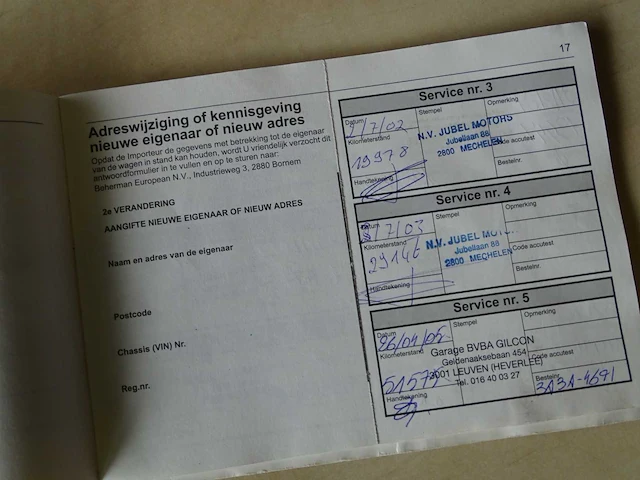 17
Adreswijziging of kennisgeving
nieuwe eigenaar of nieuw adres
Opdat de Importeur de gegevens met betrekking tot de eigenaar
van de wagen in stand kan houden, wordt U vriendelijk verzocht dit
antwoordformulier in te vullen en op te sturen naar:
Beherman European N.V., Industrieweg 3, 2880 Bornem
2e VERANDERING
AANGIFTE NIEUWE EIGENAAR OF NIEUW ADRES
Naam en adres van de eigenaar
Postcode
Chassis (VIN) Nr.
Reg.nr.
Service nr. 3
Datum
Stempel
Opmerking
2/7/02
Kilometerstand
19978
N.V. JUBEL MOTORS
Jubellaan 86
2800 MECHELEN
Code accutest
Bestelnr.
Handtekening
Service nr. 4
Datum
Stempel
Opmerking
/7/03
Kilometerstand
29146
N.V. JUBEL
Jubellaan 86
2800 MECHELEN
Code accutest
Bestelnr.
Handtekening
Service nr. 5
Datum
Stempel
Opmerking
Kilometerstand
51575
Garage BVBA GILCON
Geldenaaksebaan 454
3001 LEUVEN (HEVERLEE)
Tel. 016 40 03 27
Code accutest
Bestelnr.
3A3A-4691
Handtekening